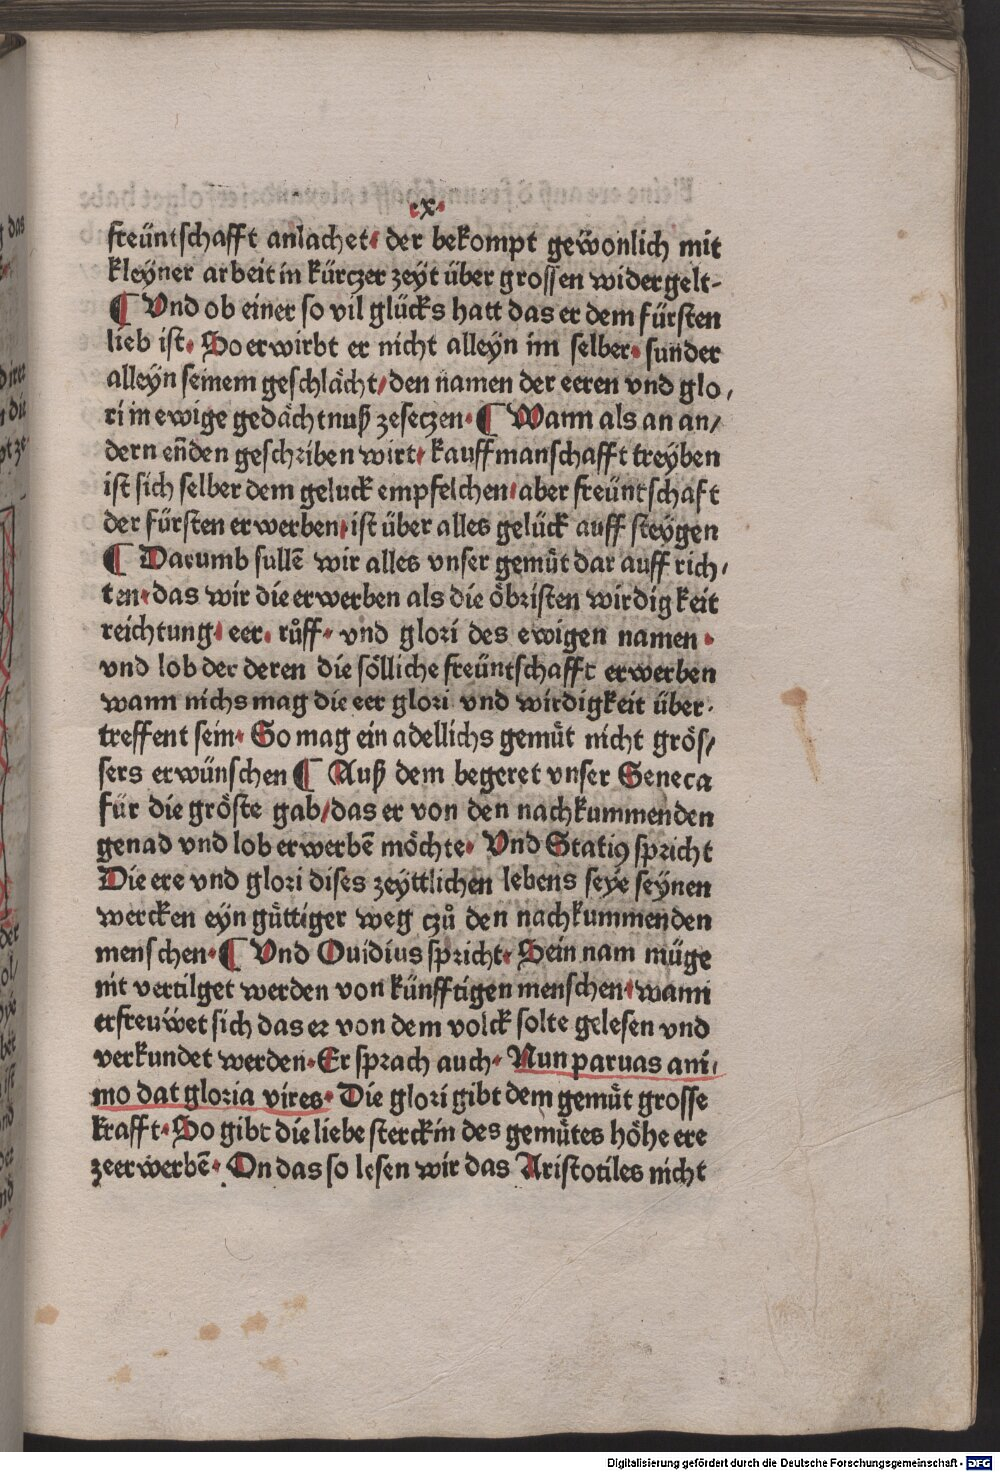 .x.
freüntschafft anlachet. der bekompt gewonlich mit
kleyner arbeit in kürczer zeyt über grossen widergelt-
¶ Vnd ob einer so vil glücks hatt das er dem fürsten
lieb ist. So erwirbt er nicht alleyn im selber. sunder
alleyn seinem geschlächt/ den namen der eeren vnd glo/
ri in ewige gedächtnuß zeseczen. ¶ Wann als an an/
dern eñden geschriben wirt. kauffmanschafft treyben
ist sich selber dem geluck empfelchen/ aber freüntschaft
der fürsten erwerben/ ist über alles gelück auff steygen
¶ Darumb sullē wir alles vnser gemüt dar auff rich/
ten. das wir die erwerben als die öbristen wirdigkeit
reichtung/ eer. růff. vnd glori des ewigen namen.
vnd lob der deren die sölliche freüntschafft erwerben
wann nichs mag die eer glori vnd wirdigkeit über.
treffent sein. So mag ein adellichs gemüt nicht grös/
sers erwünschen ¶ Auß dem begeret vnser Seneca
für die gröste gab/ das er von den nachkummenden
genad vnd lob erwerbē möchte. Vnd Statiꝰ spricht
Die ere vnd glori dises zeyttlichen lebens seye seynen
wercken eyn güttiger weg czů den nachkummenden
menschen. ¶ Vnd Ouidius spricht. Sein nam müge
nit vertilget werden von künfftigen menschen. wann
erfreuwet sich das er von dem volck solte gelesen vnd
verkundet werden. Er sprach auch. Nun paruas ani/
mo dat gloria vires. Die glori gibt dem gemüt grosse
krafft. So gibt die liebe sterck in des gemütes höhe ere
zeerwerbē. On das so lesen wir das Aristotiles nicht
Digitalisierung gefördert durch die Deutsche Forschungsgemeinschaft - DFG